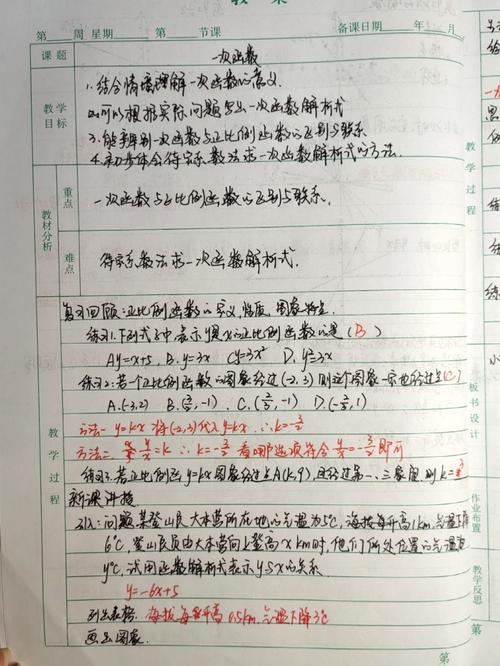 教案
第 周 星期 第 节课 备课日期 年 月
课题 一次函数
教学目标
1.结合情境理解一次函数的意义.
2.可以根据实际问题写出一次函数解析式
3.能辨别一次函数与正比例函数的区别与联系
4.初步体会待定系数法求一次函数解析式的方法.
教材分析
重点 一次函数与正比例函数的区别与联系.
难点 待定系数法求一次函数解析式.
教学过程
复习回顾:正比例函数的定义,性质,图象特点
练习1.下列式子中表示y是x的正比例函数的是(B)
A y=x+5, B. y=3x C y=3x² D. y²=3x
练习2:若个正比例函数的图象经过(-2,3)则这个图象一定也经过点(C)
A.(-3,2) B.(3/2,-1). C.(2/3,-1) D.(-2/3,1)
方法一 y=kx 将(-2,3)代入y=kx ∴k=-3/2
方法二 y/x=k ∴k=-3/2 看哪选项符合y/x=-3/2即可
练习3.若正比例函y=kx图象经过点A(k,9),且经过第一、三象限,则k=3
新课讲授
引入:问题 某登山队大本营所在地的气温为5℃,海拔每升高1km气温下降
6℃,登山队员由大本营向上登高xkm时,他们所处位置的气温是
y℃,试用函数解析式表示y与x的关系.
y=-6x+5
列出表格. 海拔每升高0.5km.气温下降3℃
画出图象.
教学过程
板书设计
作业布置
教学反思
第
第